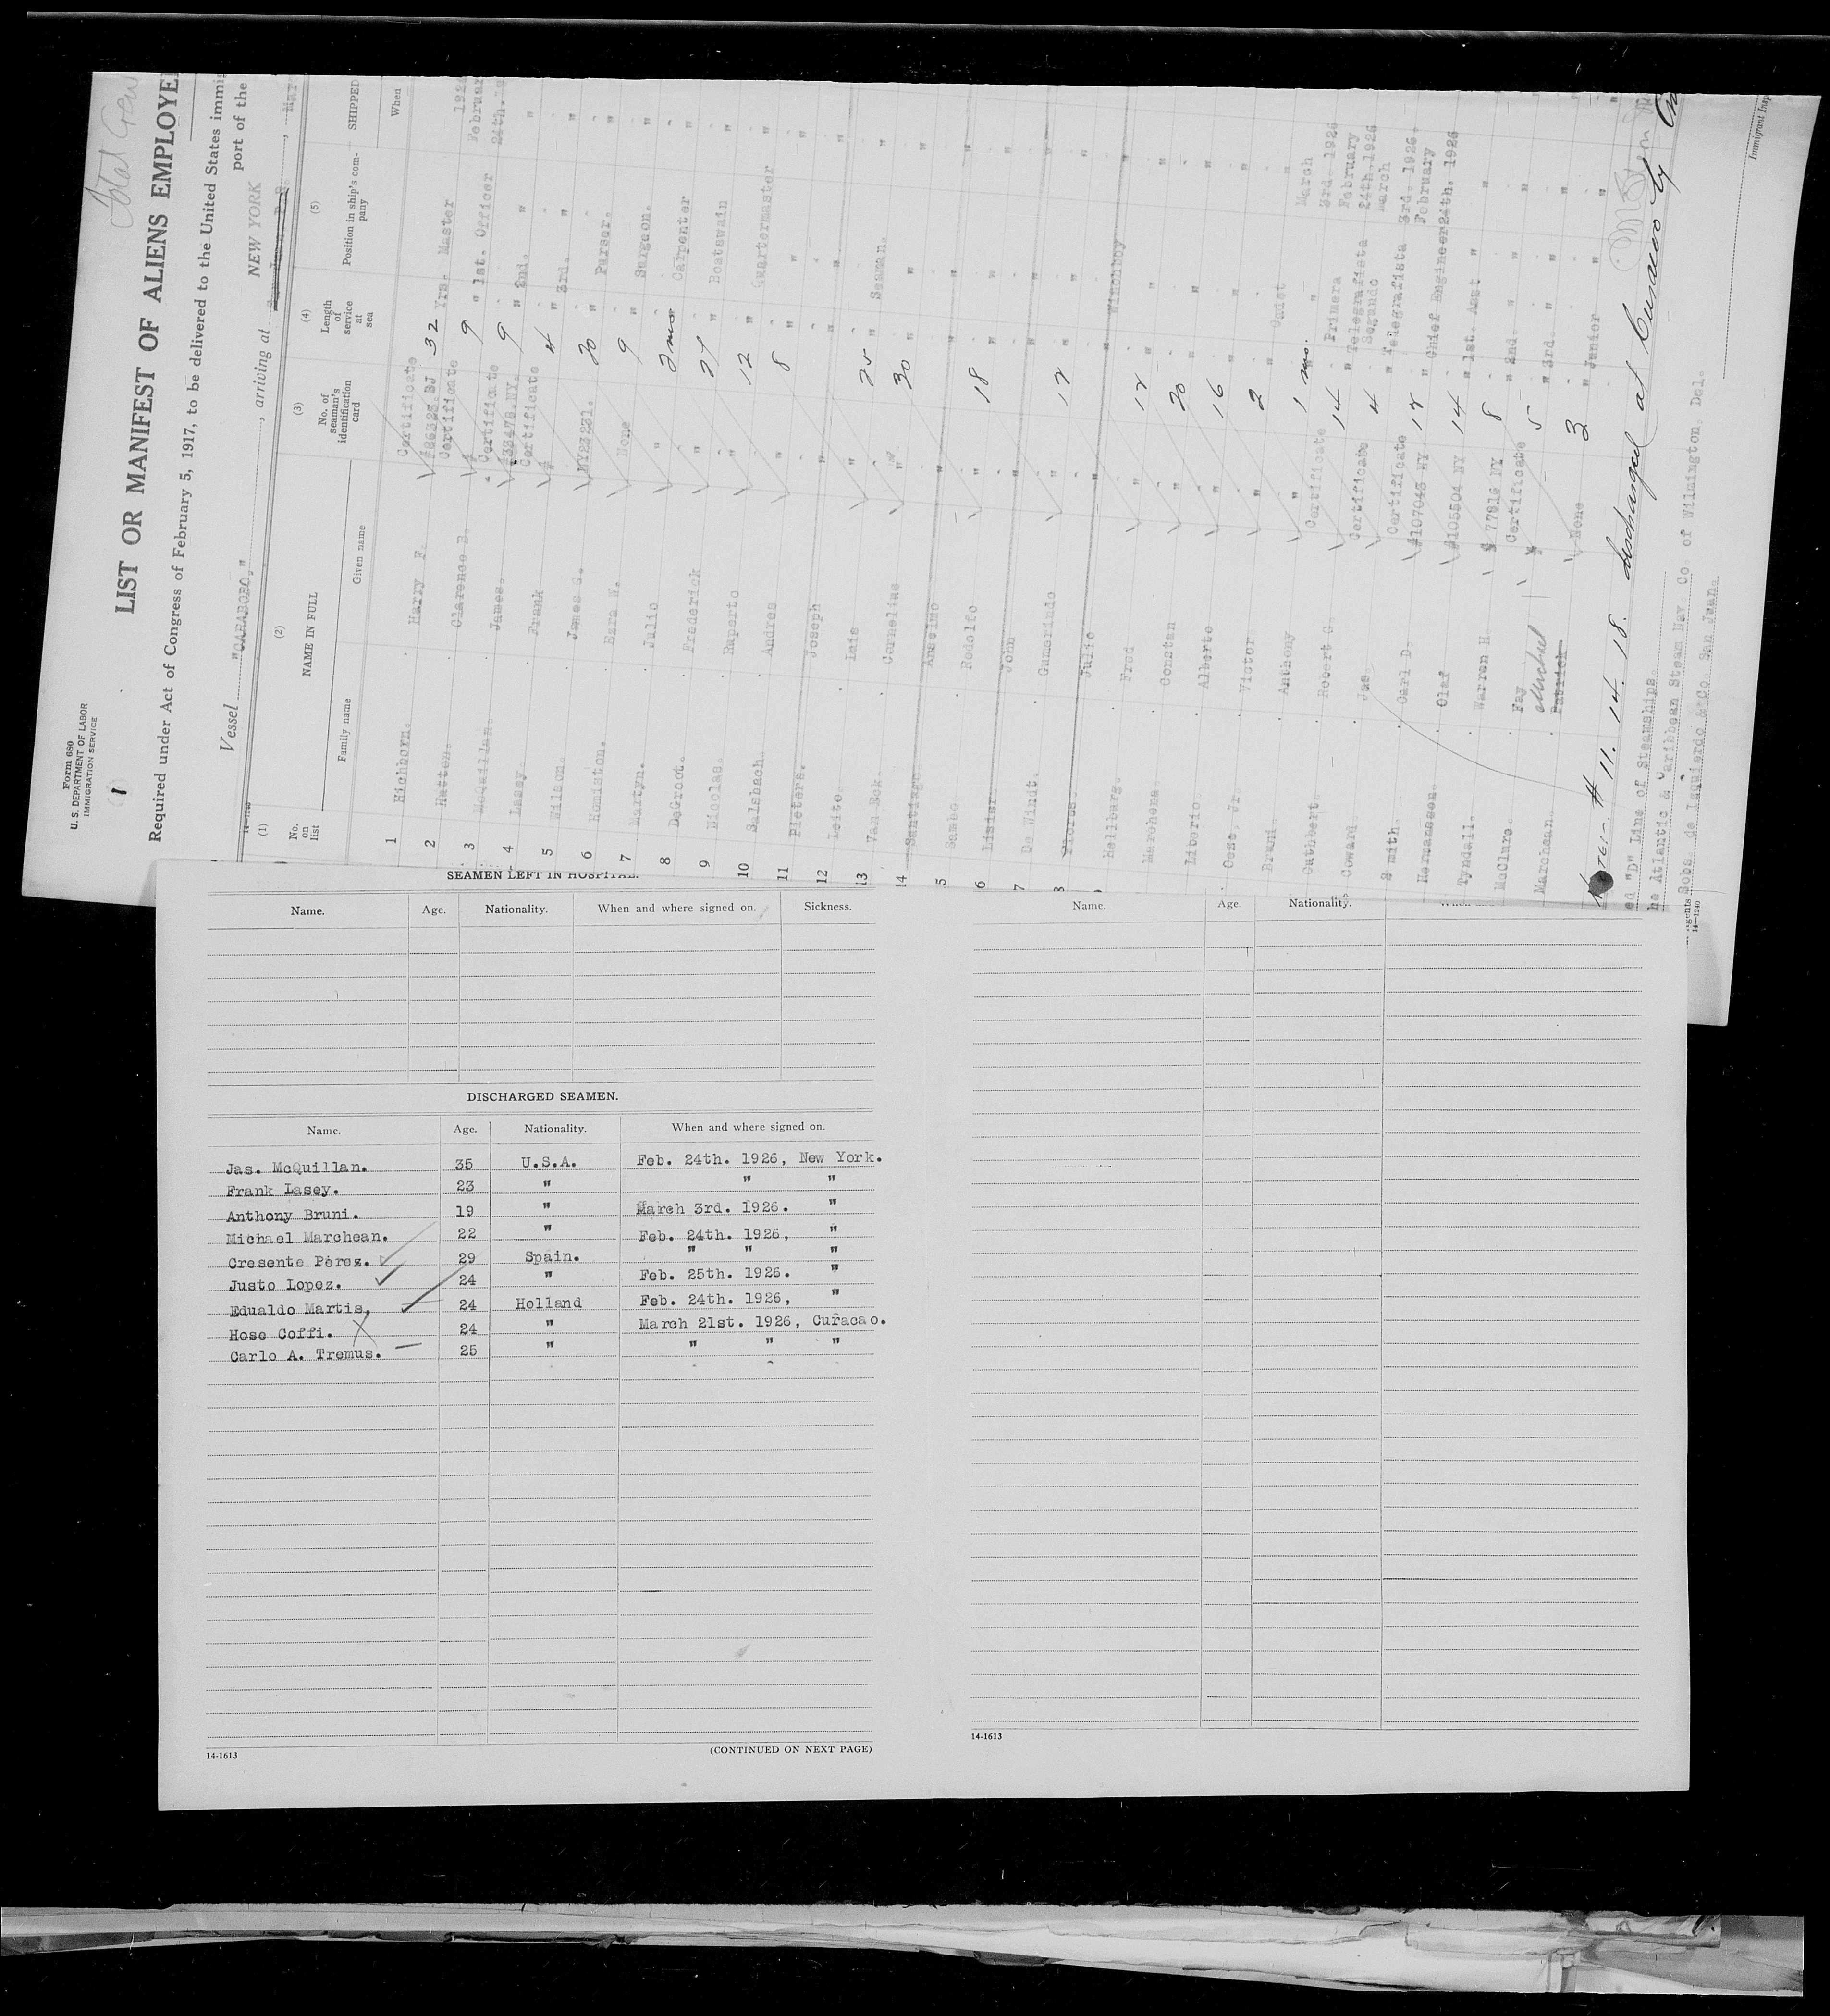 Total Crew
Form 680
U. S. DEPARTMENT OF LABOR
IMMIGRATION SERVICE
1
LIST OR MANIFEST OF ALIENS EMPLOYE
Required under Act of Congress of February 5, 1917, to be delivered to the United States immig
port of the
Vessel "CARABOBO," , arriving at NEW YORK , Mar
(1) (2) (3) (4) (5)
No. on list NAME IN FULL No. of seaman's identification card Length of service at sea Position in ship's company SHIPPED
Family name Given name When
1 Hichborn. Harry F. Certificate 32 Yrs. Master
2 Hatton. Clarence B. Certificate 9 " 1st. Officer
3 McQuillan. James. Certificate 9 " 2nd. "
4 Lasey. Frank Certificate 4 " 3rd. "
5 Wilson. James G. NY23231. 20 " Purser. "
6 Homiston. Ezra W. None 9 " Surgeon. "
7 Martyn. Julio " 2 mos Carpenter "
8 DeGroot. Frederick " 27 " Boatswain "
9 Nicolas. Ruperto " 12 " Quartermaster "
10 Salsbach. Andres " 8 " " "
11 Pieters. Joseph "
12 Leito. Luis " 25 " Seaman. "
13 Van Eck. Cornelius " 30 " " "
14 Santiago. Anselmo "
5 Sambo. Rodolfo " 18 " " "
6 Lisier. John "
7 De Windt. Gumerindo " 12 " " "
8 Flores. Julio " Winchboy "
Hellburg. Fred " 12 " " "
Marchena. Constan " 20 " " "
Liborio. Alberto " 16 " " "
Oese, Jr. Victor " 2 " Cadet "
Bruni. Anthony " 1 mo. " March 3rd. 1926
Cuthbert. Robert G. Certificate 14 " Primera Telegrafista February 24th. 1926
Coward. Jas. Certificate 4 " Segundo Telegrafista March 3rd. 1926.
Smith. Carl D. Certificate #107043 NY 12 " Chief Engineer February 24th. 1926
Hermanson. Olaf #105504 NY 14 " 1st. Asst " "
Tyndall. Warren H. 8 " 2nd. " "
McClure. Fay Certificate 5 " 3rd. " "
Marchean. Michael Patrick None 3 " Junior " "
Note:- # 11. 14. 18. discharged at Curacao by
ed "D" Line of Steamships
he Atlantic & Caribbean Steam Nav. Co of Wilmington. Del.
gents Sobs. de Luquiardo & Co San Juan.
14—1240
Immigrant Insp
SEAMEN LEFT IN HOSPITAL.
Name. Age. Nationality. When and where signed on. Sickness.
Name. Age. Nationality.
DISCHARGED SEAMEN.
Name. Age. Nationality. When and where signed on.
Jas. McQuillan. 35 U.S.A. Feb. 24th. 1926, New York.
Frank Lasey. 23 " " "
Anthony Bruni. 19 " March 3rd. 1926. "
Michael Marchean. 22 " Feb. 24th. 1926, "
Cresente Pérez. 29 Spain. " " "
Justo Lopez. 24 " Feb. 25th. 1926. "
Edualdo Martis, 24 Holland Feb. 24th. 1926, "
Hose Coffi. 24 " March 21st. 1926, Curacao.
Carlo A. Tremus. 25 " " " "
14-1613
(CONTINUED ON NEXT PAGE)
14-1613